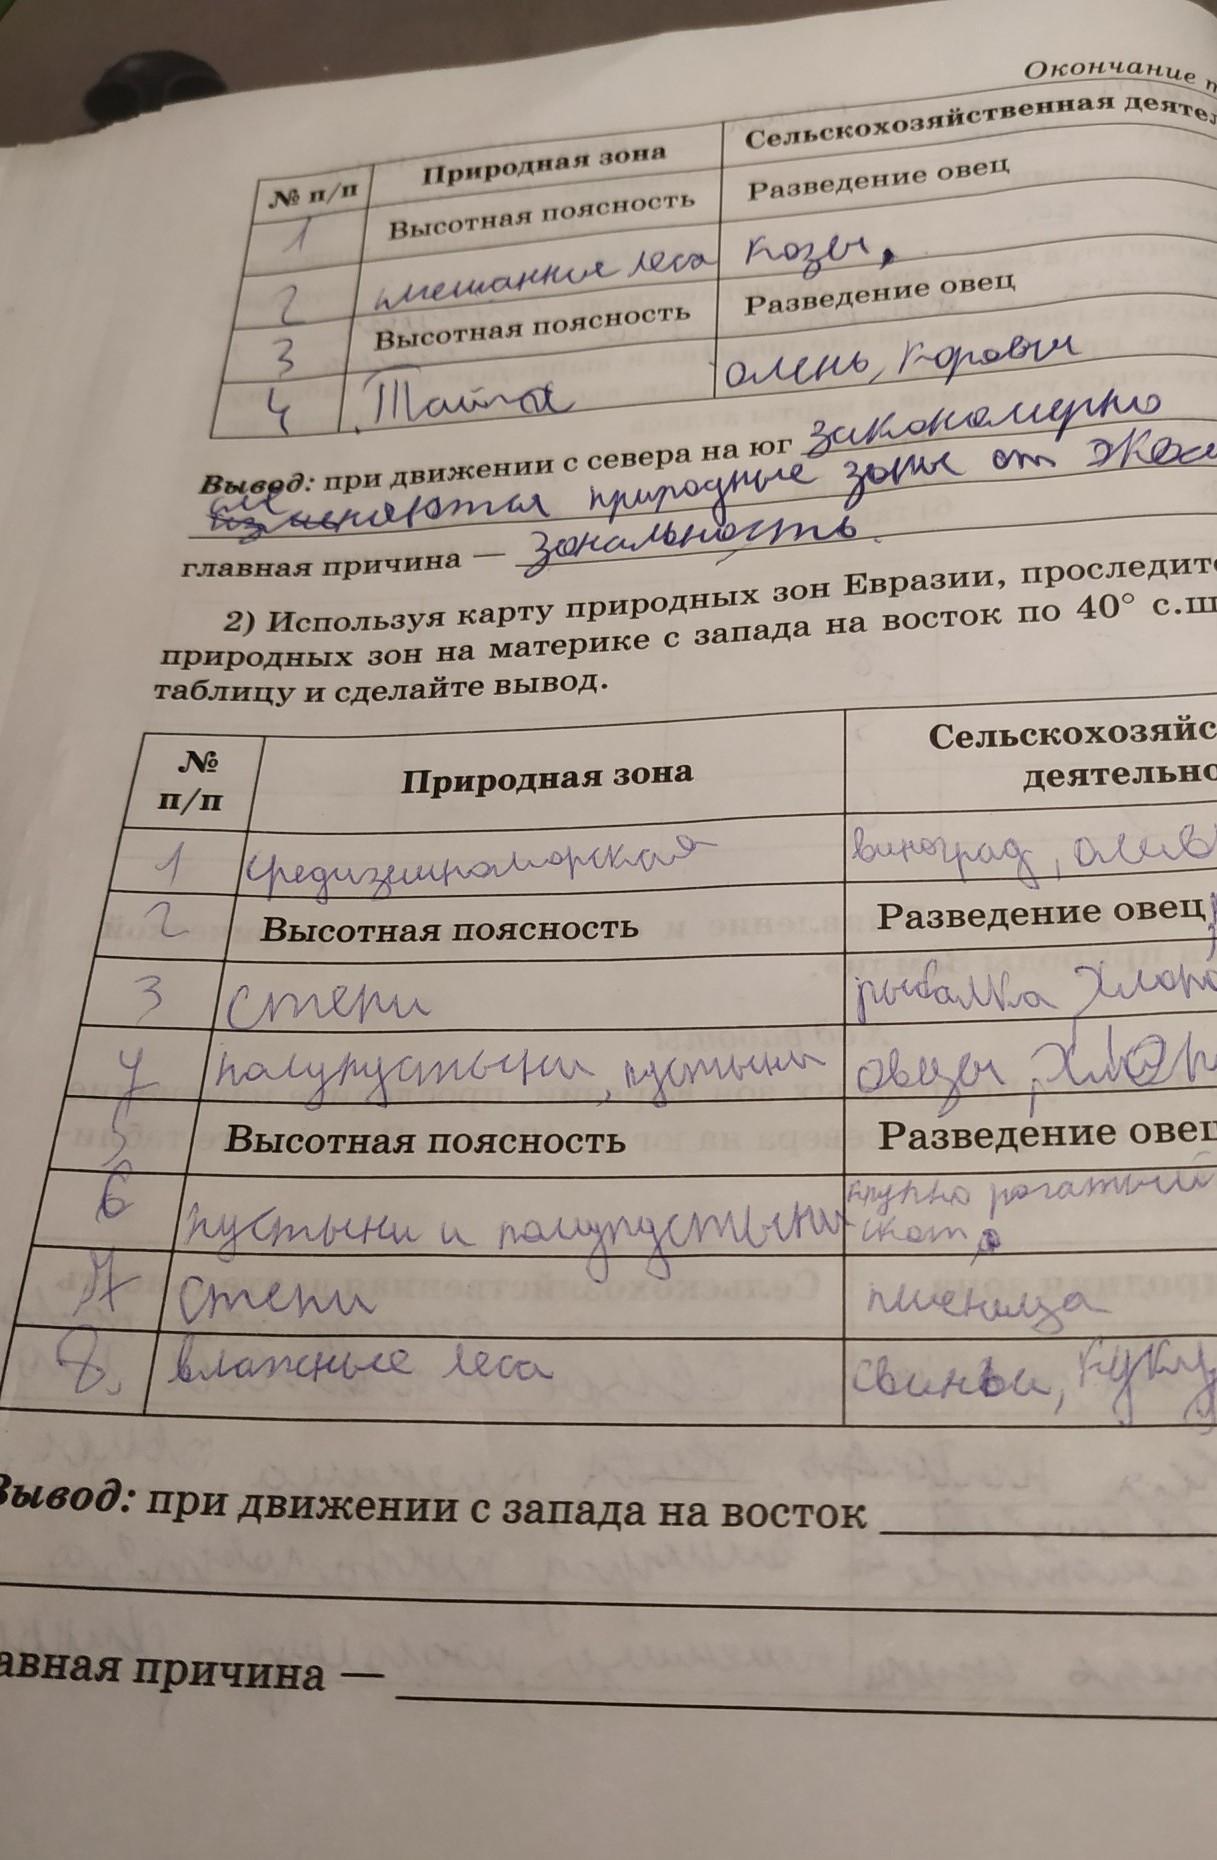 Окончание т
№ п/п Природная зона Сельскохозяйственная деятел
1 Высотная поясность Разведение овец
2 смешанные леса козы,
3 Высотная поясность Разведение овец
4 Тайга олень, коровы
Вывод: при движении с севера на юг закономерно
сменяются природные зоны от
главная причина — зональность.
2) Используя карту природных зон Евразии, проследит
природных зон на материке с запада на восток по 40° с.ш
таблицу и сделайте вывод.
№ п/п Природная зона Сельскохозяйс деятельно
1 средиземноморская виноград, олив
2 Высотная поясность Разведение овец
3 степи рыбалка хлоп
4 полупустыни, пустыни овцы,
5 Высотная поясность Разведение овец
6 пустыни и полупустыни крупно рогатый
скот
7 степи пшеница
8. влажные леса свиньи, куку
Вывод: при движении с запада на восток
авная причина —